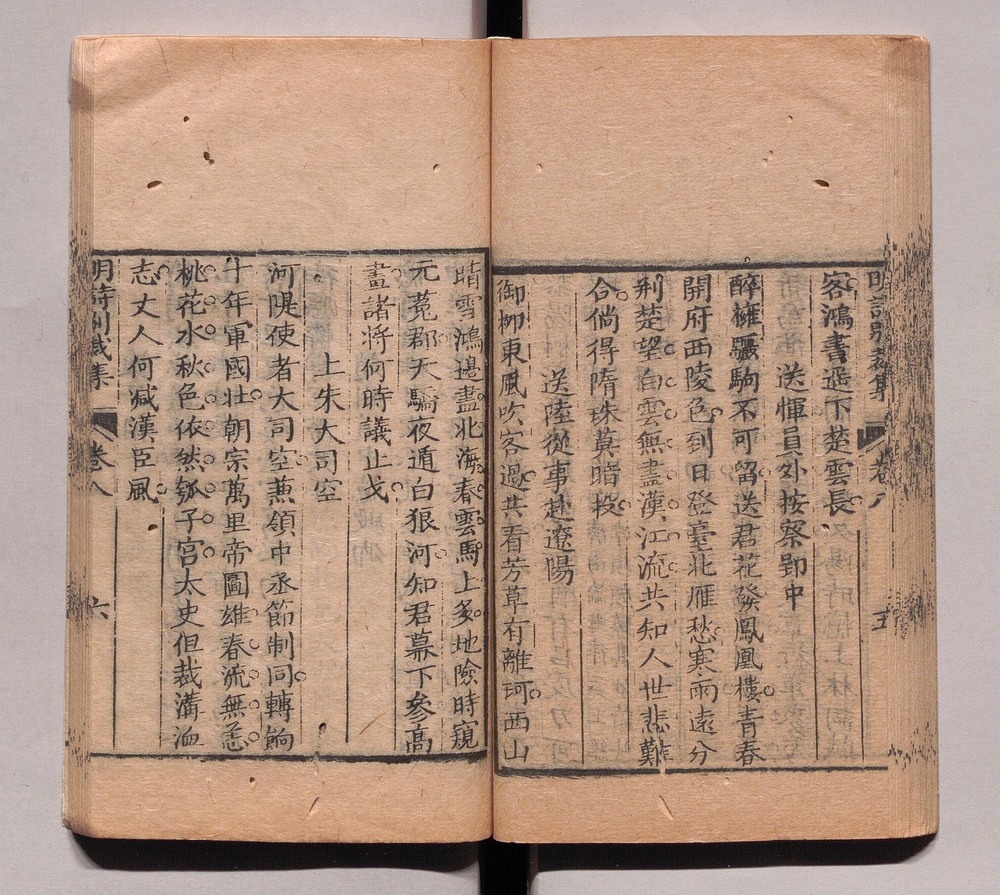 明詩別裁集 卷八 五
客鴻書遥下楚雲長
送惲員外按察郢中
醉擁驪駒不可留送君花發鳳凰樓青春
開府西陵色到日登臺北雁愁寒雨遠分
荆楚望白雲無盡漢江流共知人世悲難
合倘得隋珠莫暗投
送陸從事赴遼陽
御栁東風吹客過共看芳草有離珂西山
晴雪鴻邊盡北海春雲馬上多地險時窺
元菟郡天驕夜遁白狼河知君幕下參高
畫諸將何時議止戈
上朱大司空
河隄使者大司空兼領中丞節制同轉餉
十年軍國壯朝宗萬里帝圖雄春流無恙
桃花水秋色依然瓠子宮太史但裁溝洫
志丈人何减漢臣風
明詩別裁集 卷八 六